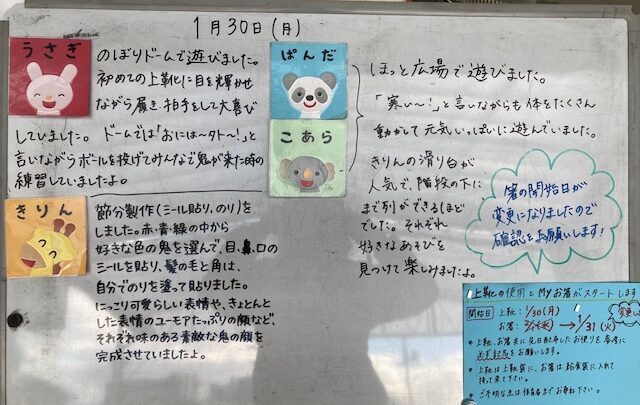 1月30日(月)
うさぎ
のぼりドームで遊びました。
初めての上靴に目を輝かせ
ながら履き拍手をして大喜び
していました。ドームでは「おには〜タト〜!」と
言いながらボールを投げてみんなで鬼が来た時の
練習していましたよ。
きりん
節分製作(シール貼り、のり)を
しました。赤・青・緑の中から
好きな色の鬼を選んで、目・鼻・口の
シールを貼り、髪の毛と角は、
自分でのりを塗って貼りました。
にっこり可愛らしい表情や、きょとんと
した表情のユーモアたっぷりの顔など、
それぞれ味のある素敵な鬼の顔を
完成させていましたよ。
ぱんだ
こあら
ほっと広場で遊びました。
「寒い〜!」と言いながらも体をたくさん
動かして元気いっぱいに遊んでいました。
きりんの滑り台が
人気で、階段の下に
まで列ができるほど
でした。それぞれ
好きなあそびを
見つけて楽しみましたよ。
箸の開始日が
変更になりましたので
確認をお願いします!
上靴の使用とMyお箸がスタートします
開始日 上靴:1/30(月)
お箸: →1/31(火)
変更
* 上靴、お箸共に先日配布したお便りを参考に
必ず記名をお願いします。
* 上靴は上靴袋に、お箸は給食袋に入れて
持って来て下さい。
* ご不明な点は係員までお尋ね下さい。